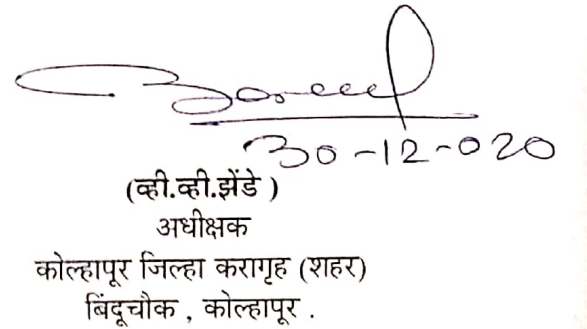 30-12-020
(व्ही.व्ही.झेंडे )
अधीक्षक
कोल्हापूर जिल्हा करागृह (शहर)
बिंदूचौक , कोल्हापूर .